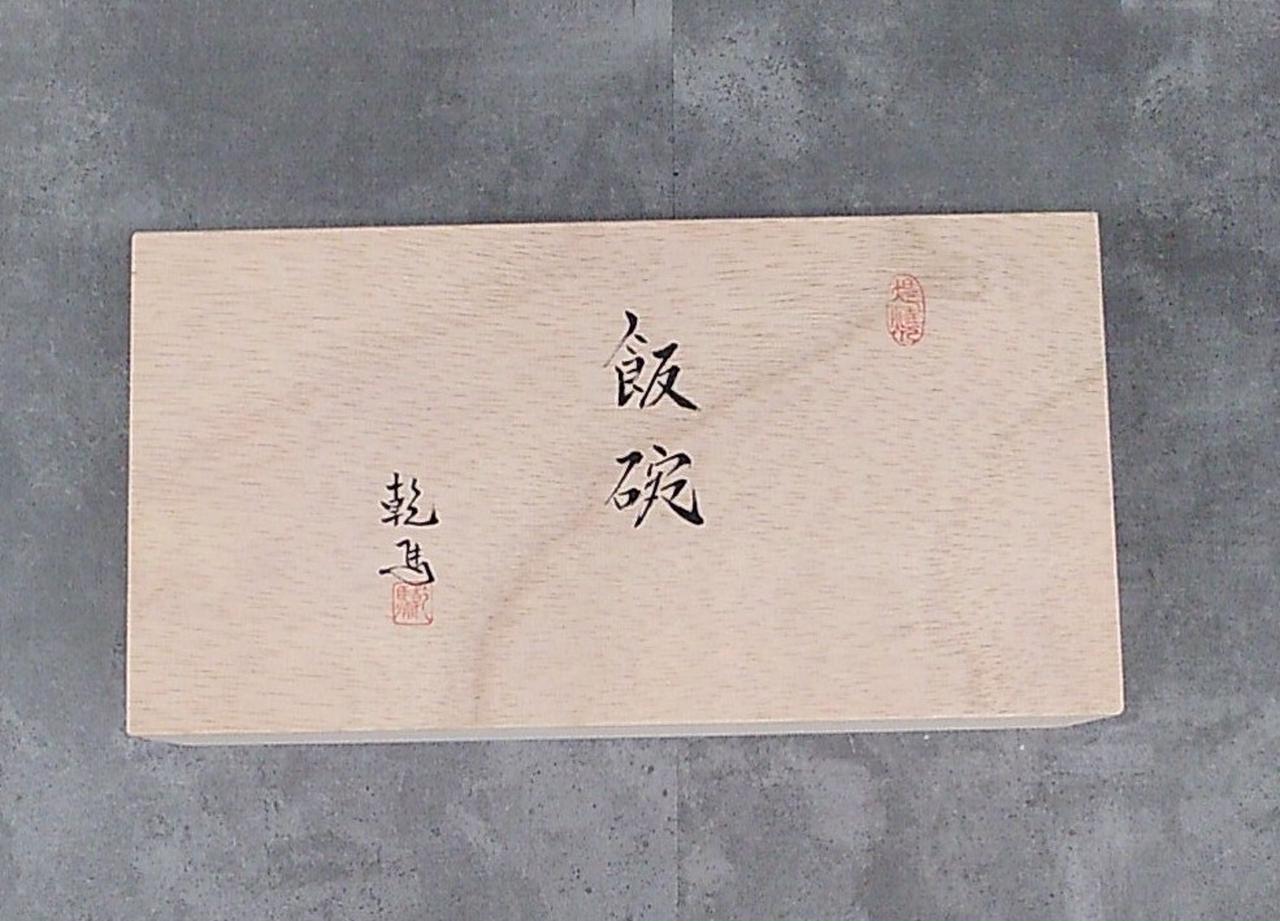 飯碗
乾馬